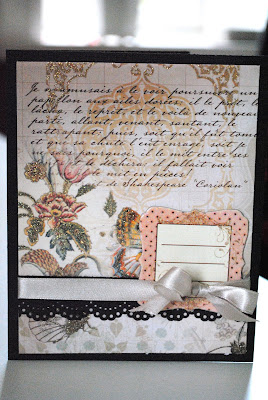 Je m'amusais à le voir poursuivre un
papillon aux ailes dorées, il le prit, le
lâcha, le reprit, et le voilà de nouveau
parti, allant, venant, sautant, le
rattrapant; puis, soit qu'il fut tombé
et que sa chute l'eût enragé, soit je
ne sais pourquoi, il le mit entre ses
et le déchira; il fallait voir
le mit en pièces!
et de Shakespeare "Coriolan"